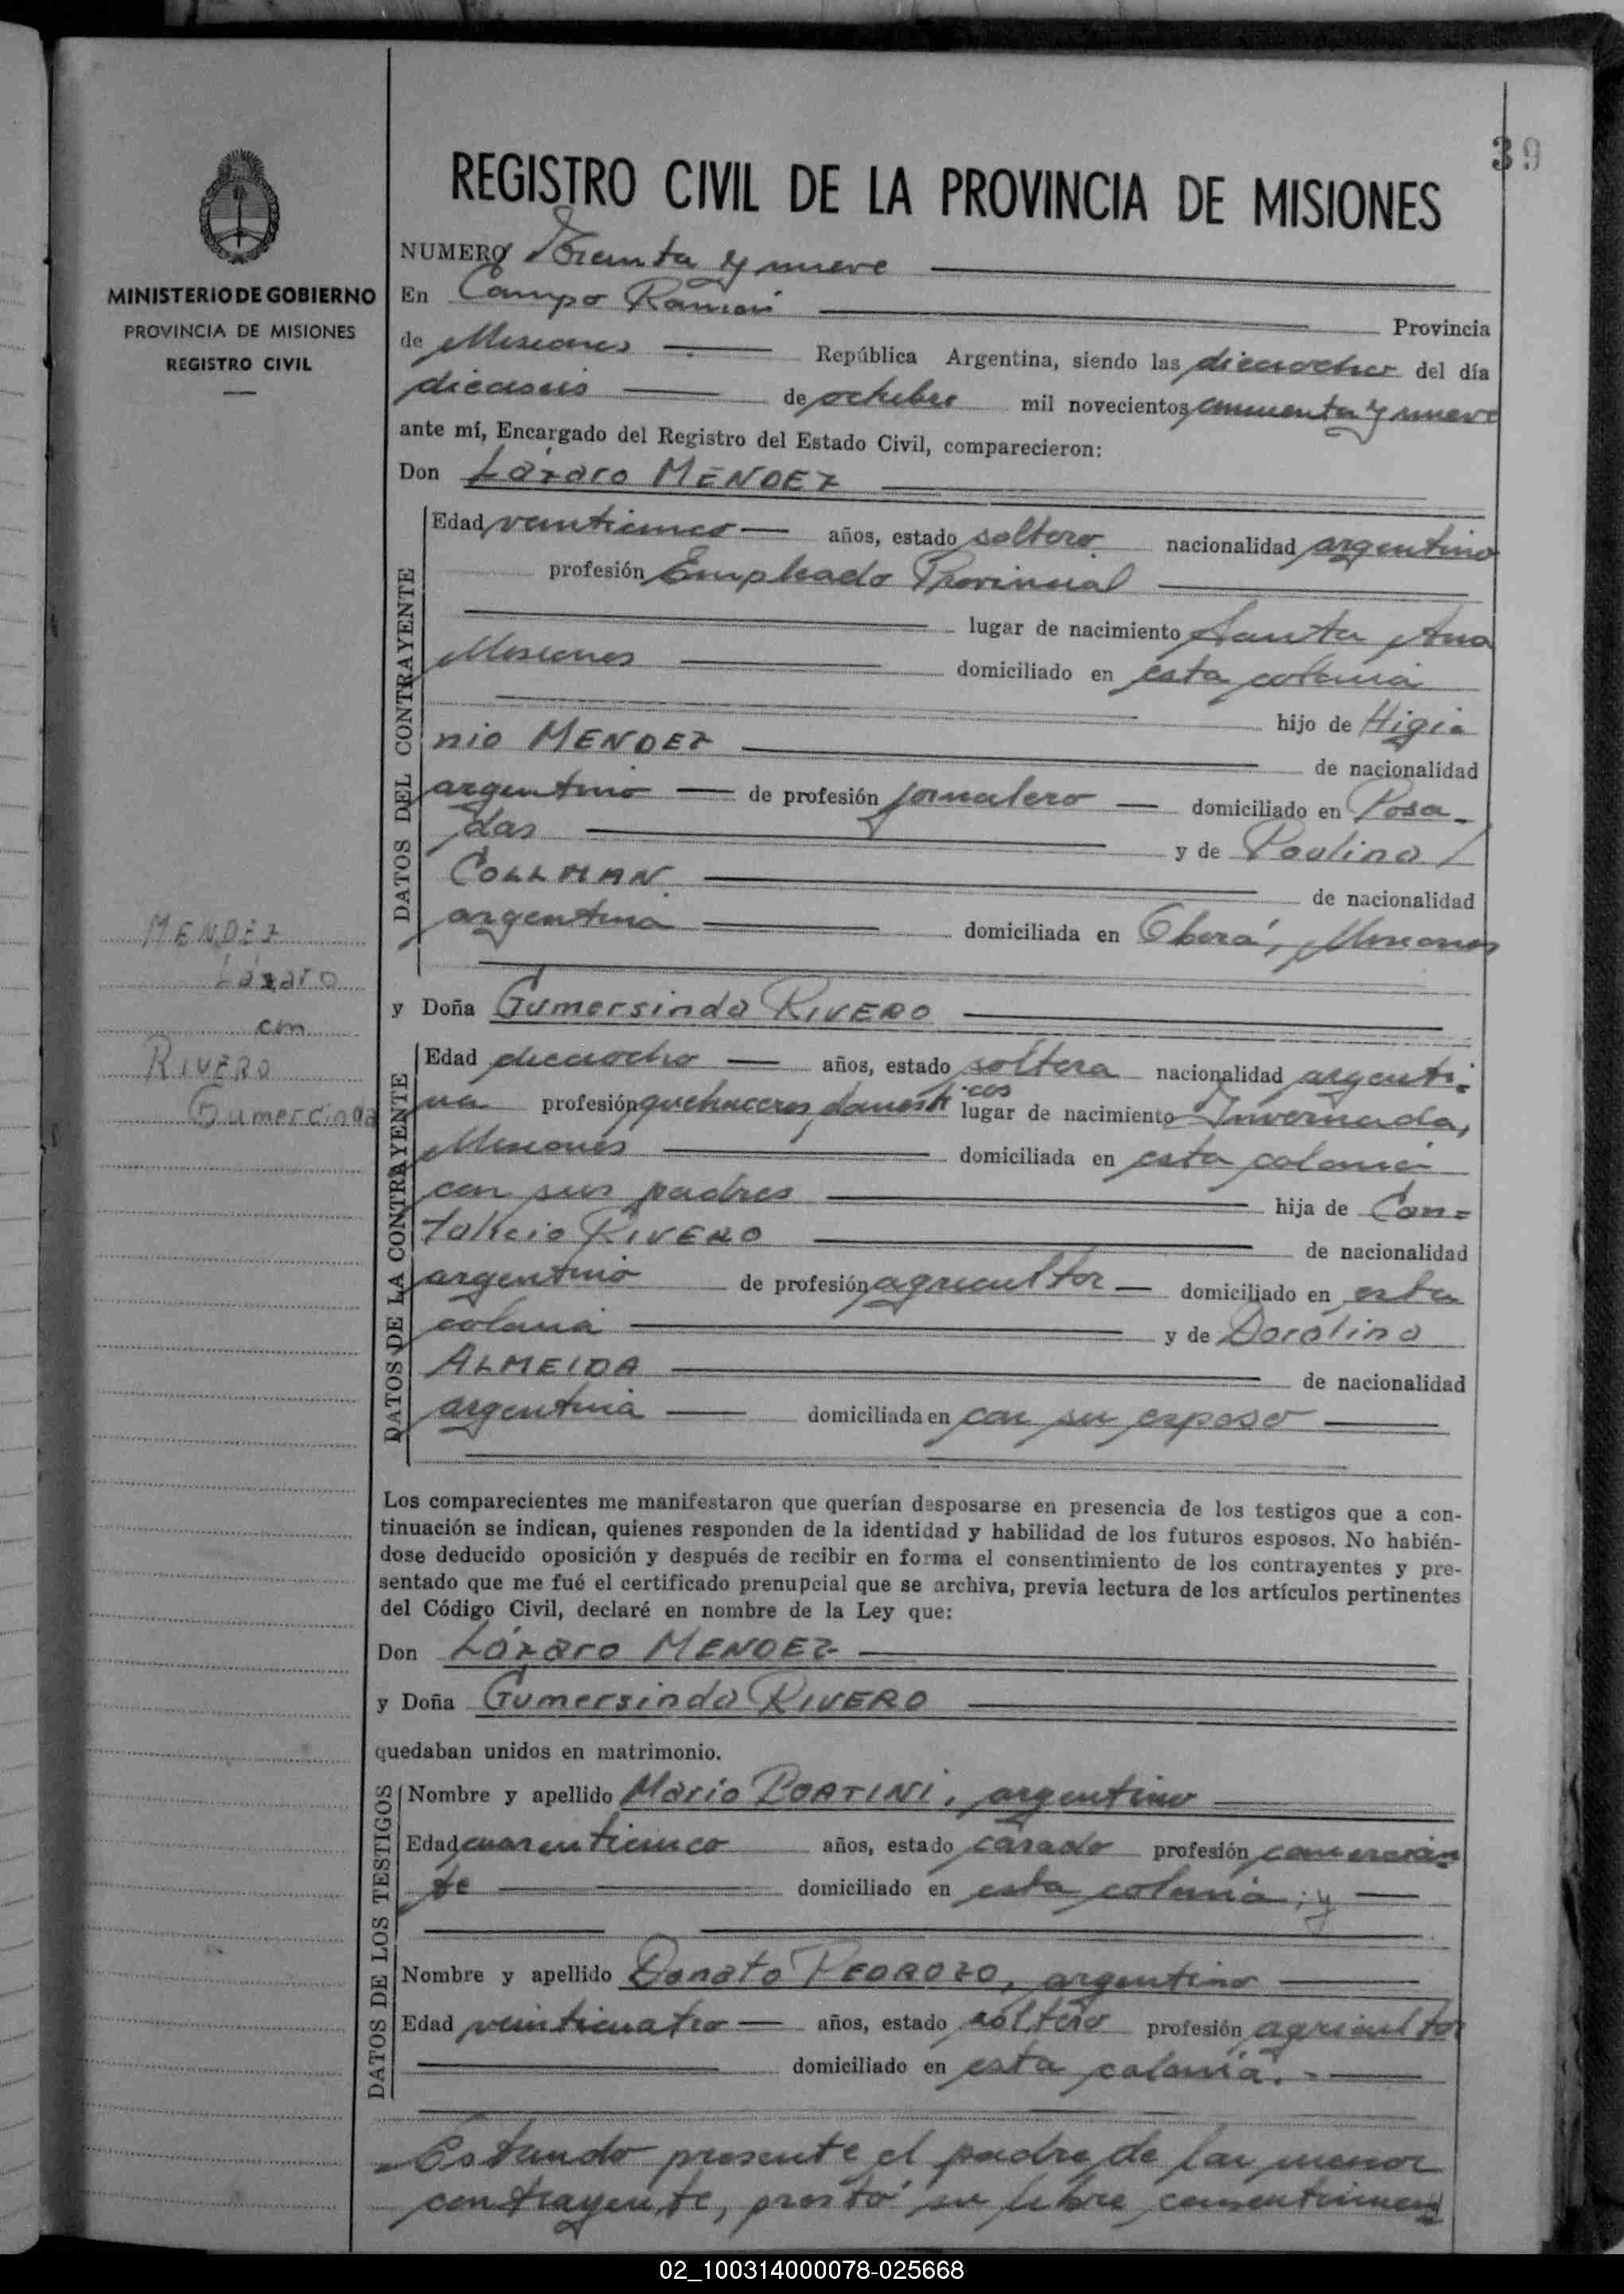 39
REGISTRO CIVIL DE LA PROVINCIA DE MISIONES
MINISTERIO DE GOBIERNO
PROVINCIA DE MISIONES
REGISTRO CIVIL
NUMERO Treinta y nueve
En Campo Ramón Provincia
de Misiones República Argentina, siendo las dieciocho del día
dieciseis de octubre mil novecientos cincuenta y nueve
ante mí, Encargado del Registro del Estado Civil, comparecieron:
Don Lázaro MENDEZ
DATOS DEL CONTRAYENTE
Edad veinticinco años, estado soltero nacionalidad argentino
profesión Empleado Provincial
lugar de nacimiento Santa Ana
Misiones domiciliado en esta colonia
hijo de Higi-
nio MENDEZ de nacionalidad
argentino de profesión jornalero domiciliado en Posa-
das y de Paulina
COLLMAN de nacionalidad
argentina domiciliada en Oberá, Misiones
MENDEZ
Lázaro
con
RIVERO
Gumercinda
y Doña Gumersinda RIVERO
DATOS DE LA CONTRAYENTE
Edad dieciocho años, estado soltera nacionalidad argenti-
na profesión quehaceres domésticos lugar de nacimiento Invernada,
Misiones domiciliada en esta colonia
con sus padres hija de Can=
talicio RIVERO de nacionalidad
argentino de profesión agricultor domiciliado en esta
colonia y de Doralina
ALMEIDA de nacionalidad
argentina domiciliada en con su esposo
Los comparecientes me manifestaron que querían desposarse en presencia de los testigos que a con-
tinuación se indican, quienes responden de la identidad y habilidad de los futuros esposos. No habién-
dose deducido oposición y después de recibir en forma el consentimiento de los contrayentes y pre-
sentado que me fué el certificado prenupcial que se archiva, previa lectura de los artículos pertinentes
del Código Civil, declaré en nombre de la Ley que:
Don Lázaro MENDEZ
y Doña Gumersinda RIVERO
quedaban unidos en matrimonio.
DATOS DE LOS TESTIGOS
Nombre y apellido Mario PORTINI, argentino
Edad cuarenticinco años, estado casado profesión comercian=
te domiciliado en esta colonia; y
Nombre y apellido Donato PEDROZO, argentino
Edad veinticuatro años, estado soltero profesión agricultor
domiciliado en esta colonia.
Estando presente el padre de la menor
contrayente, prestó su libre consentimien=
02_100314000078-025668